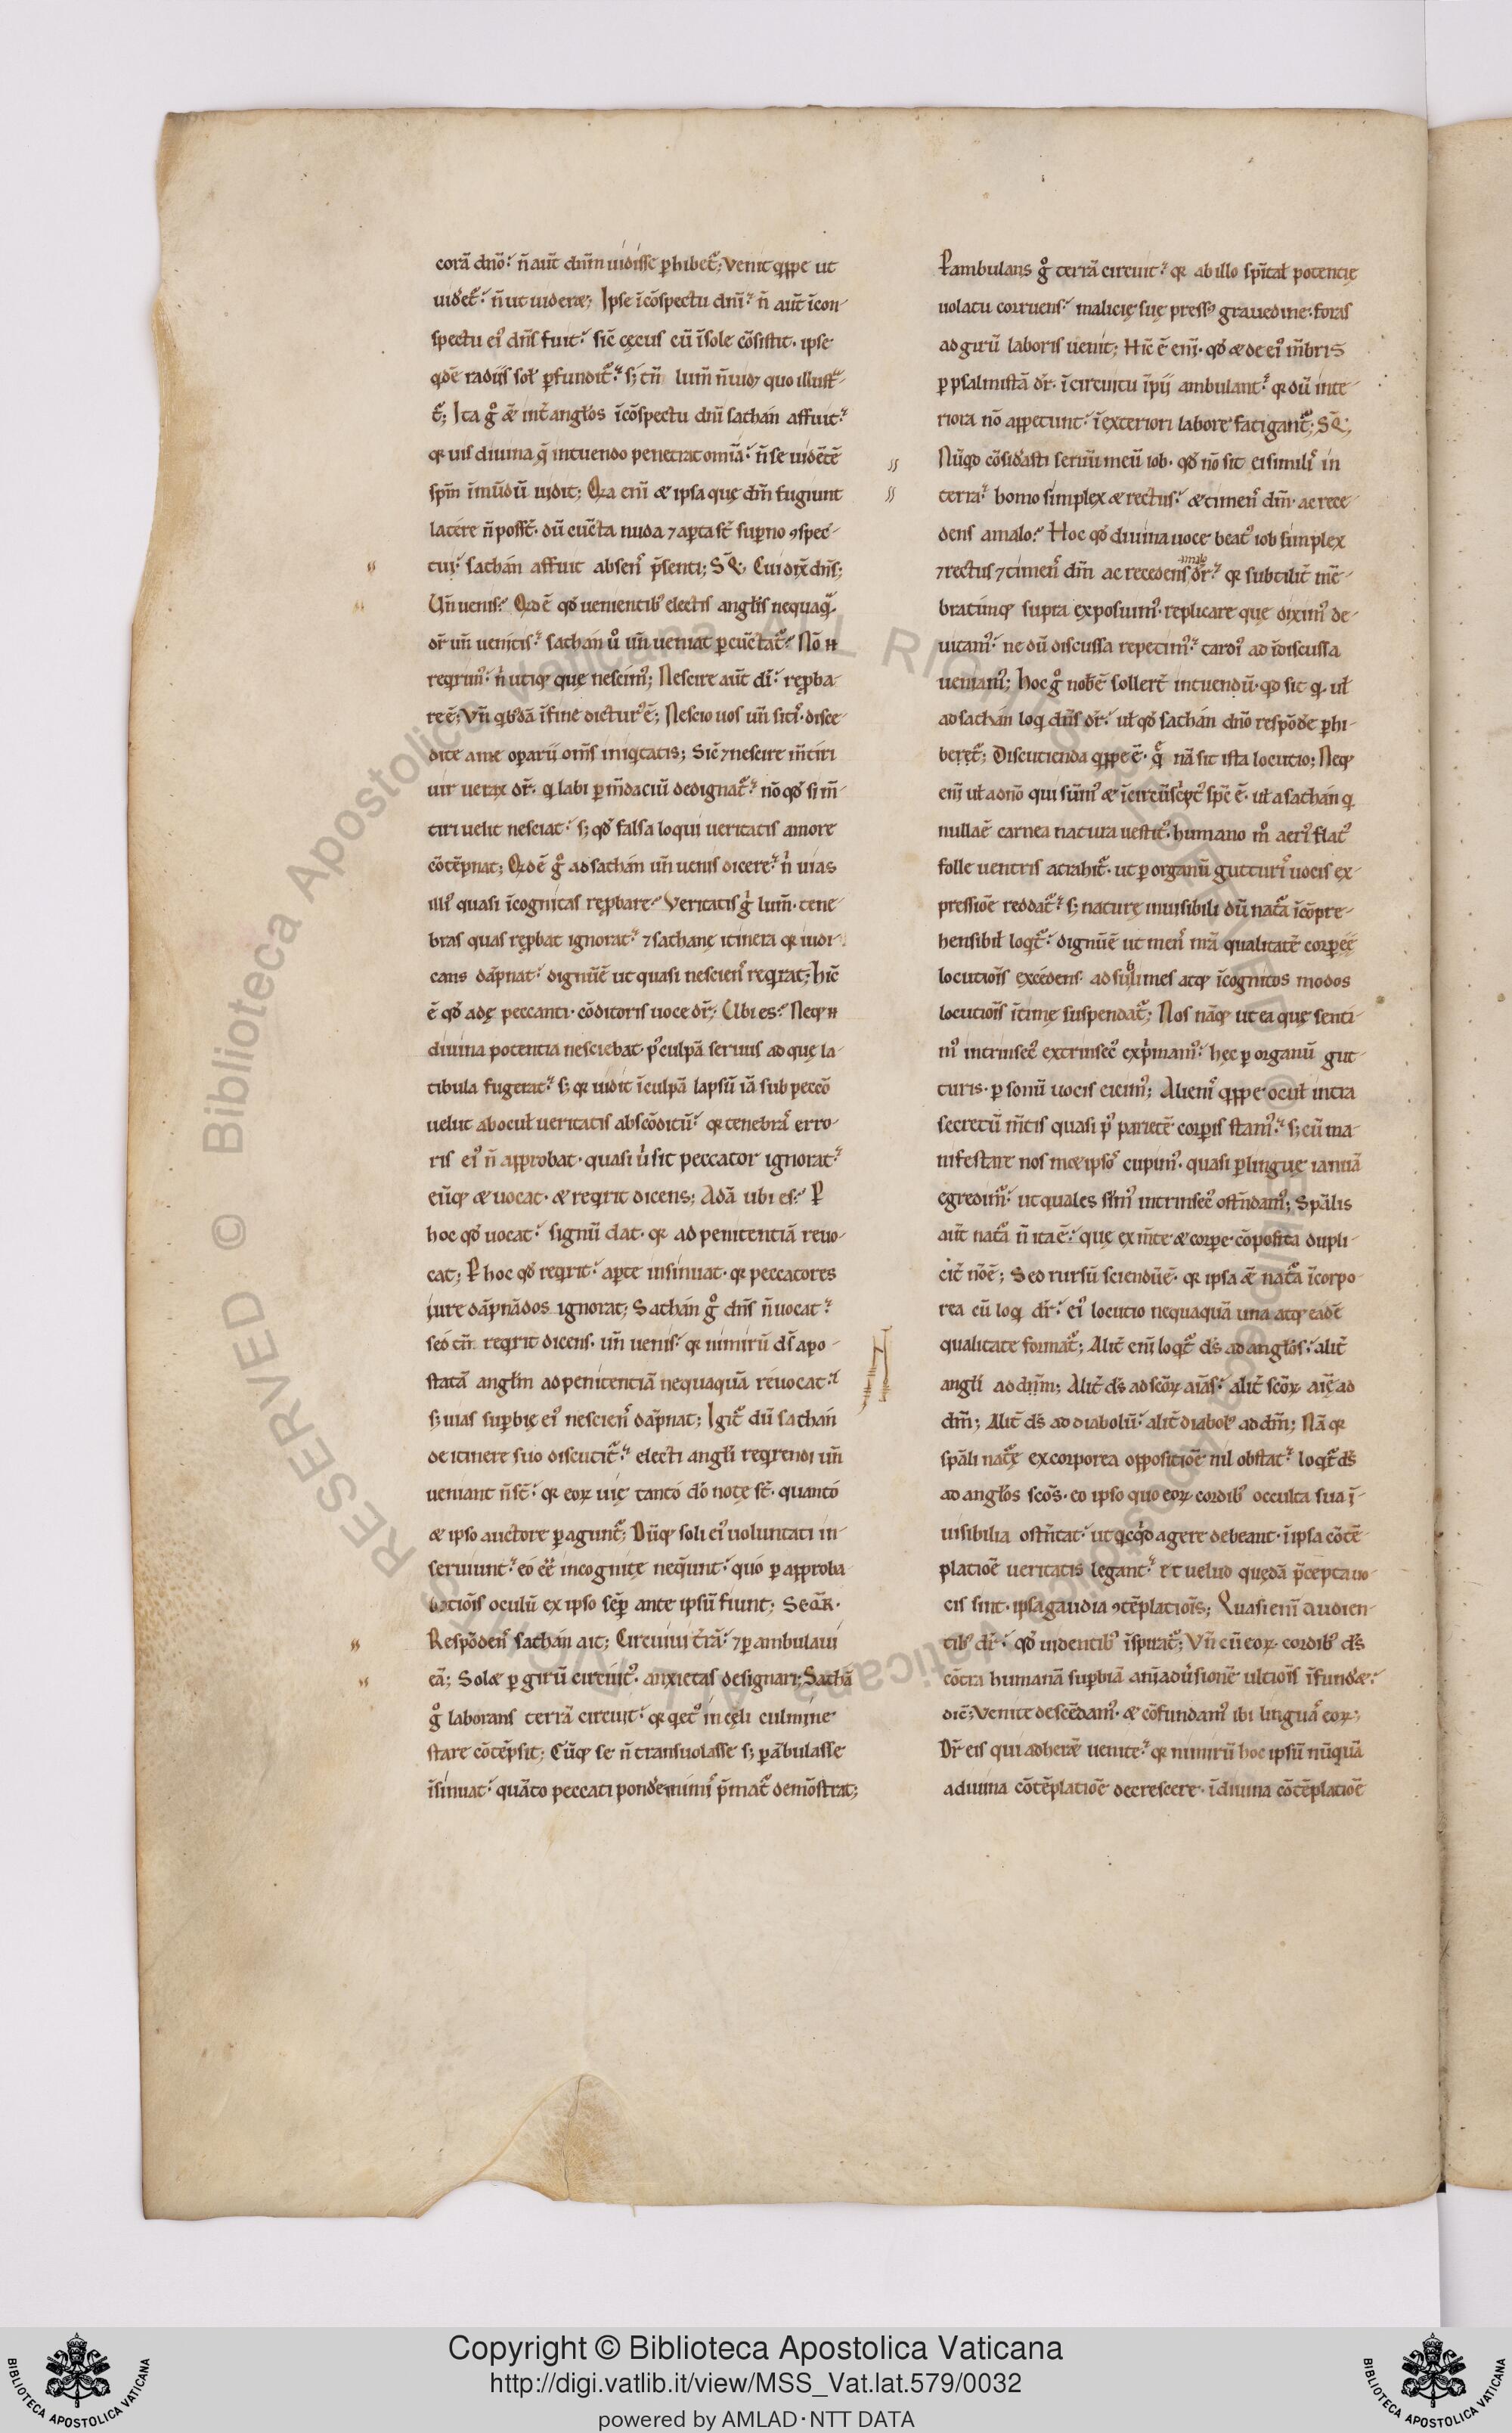 corā dnō. n̄ aut̄ dnm̄ uidisse ꝑhibet᷑; Venit qppe ut
uidet᷑. n̄ ut uideret; Ipse īcōspectu dnī. n̄ aut̄ īcon-
spectu ei᷒ dn̄s fuit. sic̄ cęcus cū īsole cōsistit. ipse
qdē radiis sol ꝑfundit᷑. sꝫ tn̄ lum̄ n̄ uidꝫ quo illust᷑-
t᷑; Ita g° & int̄ anglos īcōspectu dnī sathán affuit.
qꝛ uis diuina q̄ intuendo penetrat omīa. n̄ se uidētē
spm̄ īmūdū uidit; Qꝛa enī & ipsa quę dm̄ fugiunt
latére n̄ poss̄t. dū cūcta nuda ⁊ aꝑta st̄ suꝑno ꝯspec-
tui. sathán affuit absen᷒ p̄senti; SQ̄. Cui dix̄ dn̄s;
Un̄ uenis. Qꝛdē qd̄ uenientib᷒ electis angl̄is nequaq̄.
dr̄ un̄ uenitis. sathán u° un̄ ueniat ꝑcūctat᷑. Nō n
reqrim᷒. n̄ utiqꝫ quę nescim᷒; Nescire aut̄ dī. rep̄ba-
re ē; Vn̄ qbdā īfine dictur᷒ ē; Nescio uos un̄ sitis. disce-
dite a me oꝑarii om̄s iniqtatis; Sic̄ ⁊ nescire m̄tiri
uir uerax dr̄. q labi ꝑ m̄daciū dedignat᷑. nō qd̄ si m̄-
tiri uelit nesciat. sꝫ qd̄ falsa loqui ueritatis amore
cōtēpnat; Qꝛdē g° ad sathán un̄ uenis dicere. n̄ uias
illi᷒ quasi īcognitas reꝓbare. Veritatis g° lum̄. tene-
bras quas reꝓbat ignorat. ⁊ sathanę itinera qꝛ iudi-
cans dāpnat. dignū ē ut quasi nescien᷒ reqrat; hic̄
ē qd̄ adę peccanti. cōditoris uoce dr̄; Ubi es. Neqꝫ n
diuina potentia nesciebat. p᷒ culpā seruus ad quę la-
tibula fugerat. sꝫ qꝛ uidit īculpā lapsū iā sub peccō
uelut ab ocul̄ ueritatis abscōditū. qꝛ tenebra᷒ erro-
ris ei᷒ n̄ approbat. quasi u᷒ sit peccator ignorat.
eūqꝫ & uocat. & reqrit dicens; Adā ubi es. Ꝑ
hoc qd̄ uocat. signū dat. qꝛ ad penitentiā reuo-
cat; Ꝑ hoc qd̄ reqrit. aꝑte insinuat. qꝛ peccatores
iure dāpnādos ignorat; Sathán g° dn̄s n̄ uocat.
sed tn̄ reqrit dicens. un̄ uenis. qꝛ nimirū ds̄ apo-
statā anglm̄ ad penitentiā nequaquā reuocat.
sꝫ uias suꝑbię ei᷒ nescien᷒ dāpnat; Igit᷑ dū sathán
de itinere suo discutit᷑. electi angl̄i reqrendi un̄
ueniant n̄ st̄. qꝛ eoꝝ uię tantó do̅ notę st̄. quantó
& ipso auctore ꝑagunt᷑; Dūqꝫ soli ei᷒ uoluntati in-
seruiunt. eó ēē incognitę neq̄unt. quó ꝑ approba-
tiois oculū ex ipso semꝑ ante ipsū fiunt; SEQR̄.
Respōden᷒ sathán ait; Circuiui t̄rā. ⁊ ꝑambulaui
eā; Solet ꝑ girū circuit᷒. anxietas designari; Sathā
g° laborans terrā circuit. qꝛ qet᷒ in cęli culmine
stare cōtēpsit; Cūqꝫ se n̄ transuolasse sꝫ ꝑābulasse
īsinuat. quāto peccati pondere nimi᷒ p̄mat᷑ demōstrat;
Ꝑambulans g° terrā circuit. qꝛ ab illo sp̄ital̄ potentię
uolatu corruens. malicię suę press᷒ grauedine. foras
ad girū laboris uenit; Hic̄ ē enī. qd̄ & de ei᷒ m̄bris
ꝑ psalmistā dr̄. īcircuitu īpii ambulant. qꝛ dū inte-
riora nō appetunt. īexteriori labore fatigant᷑; SQ̄;
Nūqd cōsidasti seruū meū iob. qd̄ nō sit ei simil᷒ in
terra. homo simplex & rectus. & timen᷒ dm̄. ac rece-
dens a malo. Hoc qd̄ diuina uoce beat᷒ iob simplex
⁊ rectus ⁊ timen᷒ dm̄ ac recedens a malo dr̄. qꝛ subtilit̄ mē-
bratimqꝫ supra exposuim᷒. replicare que dixim᷒ de-
uitam᷒. ne dū discussa repetim᷒. tardi᷒ ad īdiscussa
ueniam᷒; hoc g° nob̄ ē sollert̄ intuendū. qd sit q. ul̄
ad sathán loq dn̄s dr̄. ul̄ qd̄ sathán dnō respōde ꝑhi-
beret᷑; Discutienda qppe ē. q̄ nā sit ista locutio; Neqꝫ
enī ul̄ a dnō qui sūm᷒ & īcircūscpt᷒ spc̄ ē. ul̄ a sathán q
nulla ē carnea natura uestit᷒. humano m° aeri᷒ flat᷒
folle uentris atrahit᷑. ut ꝑ organū gutturi᷒ uocis ex-
pressiōe reddat᷑. sꝫ naturę inuisibili dū nat᷑a īcōpre-
hensibil̄ loqt᷑. dignū ē ut men᷒ nr̄a qualitatē corꝑeę
locutiois excédens. ad sublimes atqꝫ īcognitos modos
locutiois ītimę suspendat᷑; Nos nāqꝫ ut ea quę senti-
m᷒ intrinsec᷒ extrinsec᷒ exp̄mam᷒. hęc ꝑ organū gut-
turis. ꝑ sonū uocis eicim᷒; Alieni᷒ qppe ocul̄ intra
secretū m̄tis quasi p᷒ parietē corꝑis stam᷒. sꝫ cū ma-
nifestare nos metipso᷒ cupim᷒. quasi ꝑ linguę ianuā
egredim᷒. ut quales sim᷒ intrinsec᷒ ostn̄dam᷒; Spālis
aut̄ nat᷑a n̄ ita ē. quę ex m̄te & corꝑe cōposita dupli-
cit̄ nō ē; Sed rursū sciendū ē. qꝛ ipsa & nat᷑a īcorpo-
rea cū loq dr̄. ei᷒ locutio nequaquā una atqꝫ eadē
qualitate format᷑; Alit̄ enī loqt᷑ ds̄ ad anglos. alit̄
angli ad dnm̄; Alit̄ ds̄ ad scōꝝ aīas. alit̄ scōꝝ aīę ad
dm̄; Alit̄ ds̄ ad diabolū. alit̄ diabol᷒ ad dm̄; Nā qꝛ
spāli nat᷑ę ex corporea oppositiōe nil obstat. loqt᷑ ds̄
ad anglos scōs. eo ipso quo eoꝝ cordib᷒ occulta sua ī-
uisibilia ostn̄tat. ut qcqd agere debeant. īipsa cōtē-
platiōe ueritatis legant. et uelud quędā p̄cepta uo-
cis sint. ipsa gaudia ꝯtēplatiois; Quasi enī audien-
tib᷒ dr̄. qd̄ uidentib᷒ īspirat᷑; Vn̄ cū eoꝝ cordib᷒ ds̄
cōtra humanā suꝑbiā aīaduersionē ultiois īfundet.
dic̄; Venite descēdam᷒. & cōfundam᷒ ibi linguā eoꝝ;
Dr̄ eis qui adheret uenite. qꝛ nimirū hoc ipsū nūquā
a diuina cōtēplatiōe decrescere. īdiuina cōtēplatiōe
Copyright © Biblioteca Apostolica Vaticana
http://digi.vatlib.it/view/MSS_Vat.lat.579/0032
powered by AMLAD · NTT DATA
BIBLIOTECA APOSTOLICA VATICANA
BIBLIOTECA APOSTOLICA VATICANA